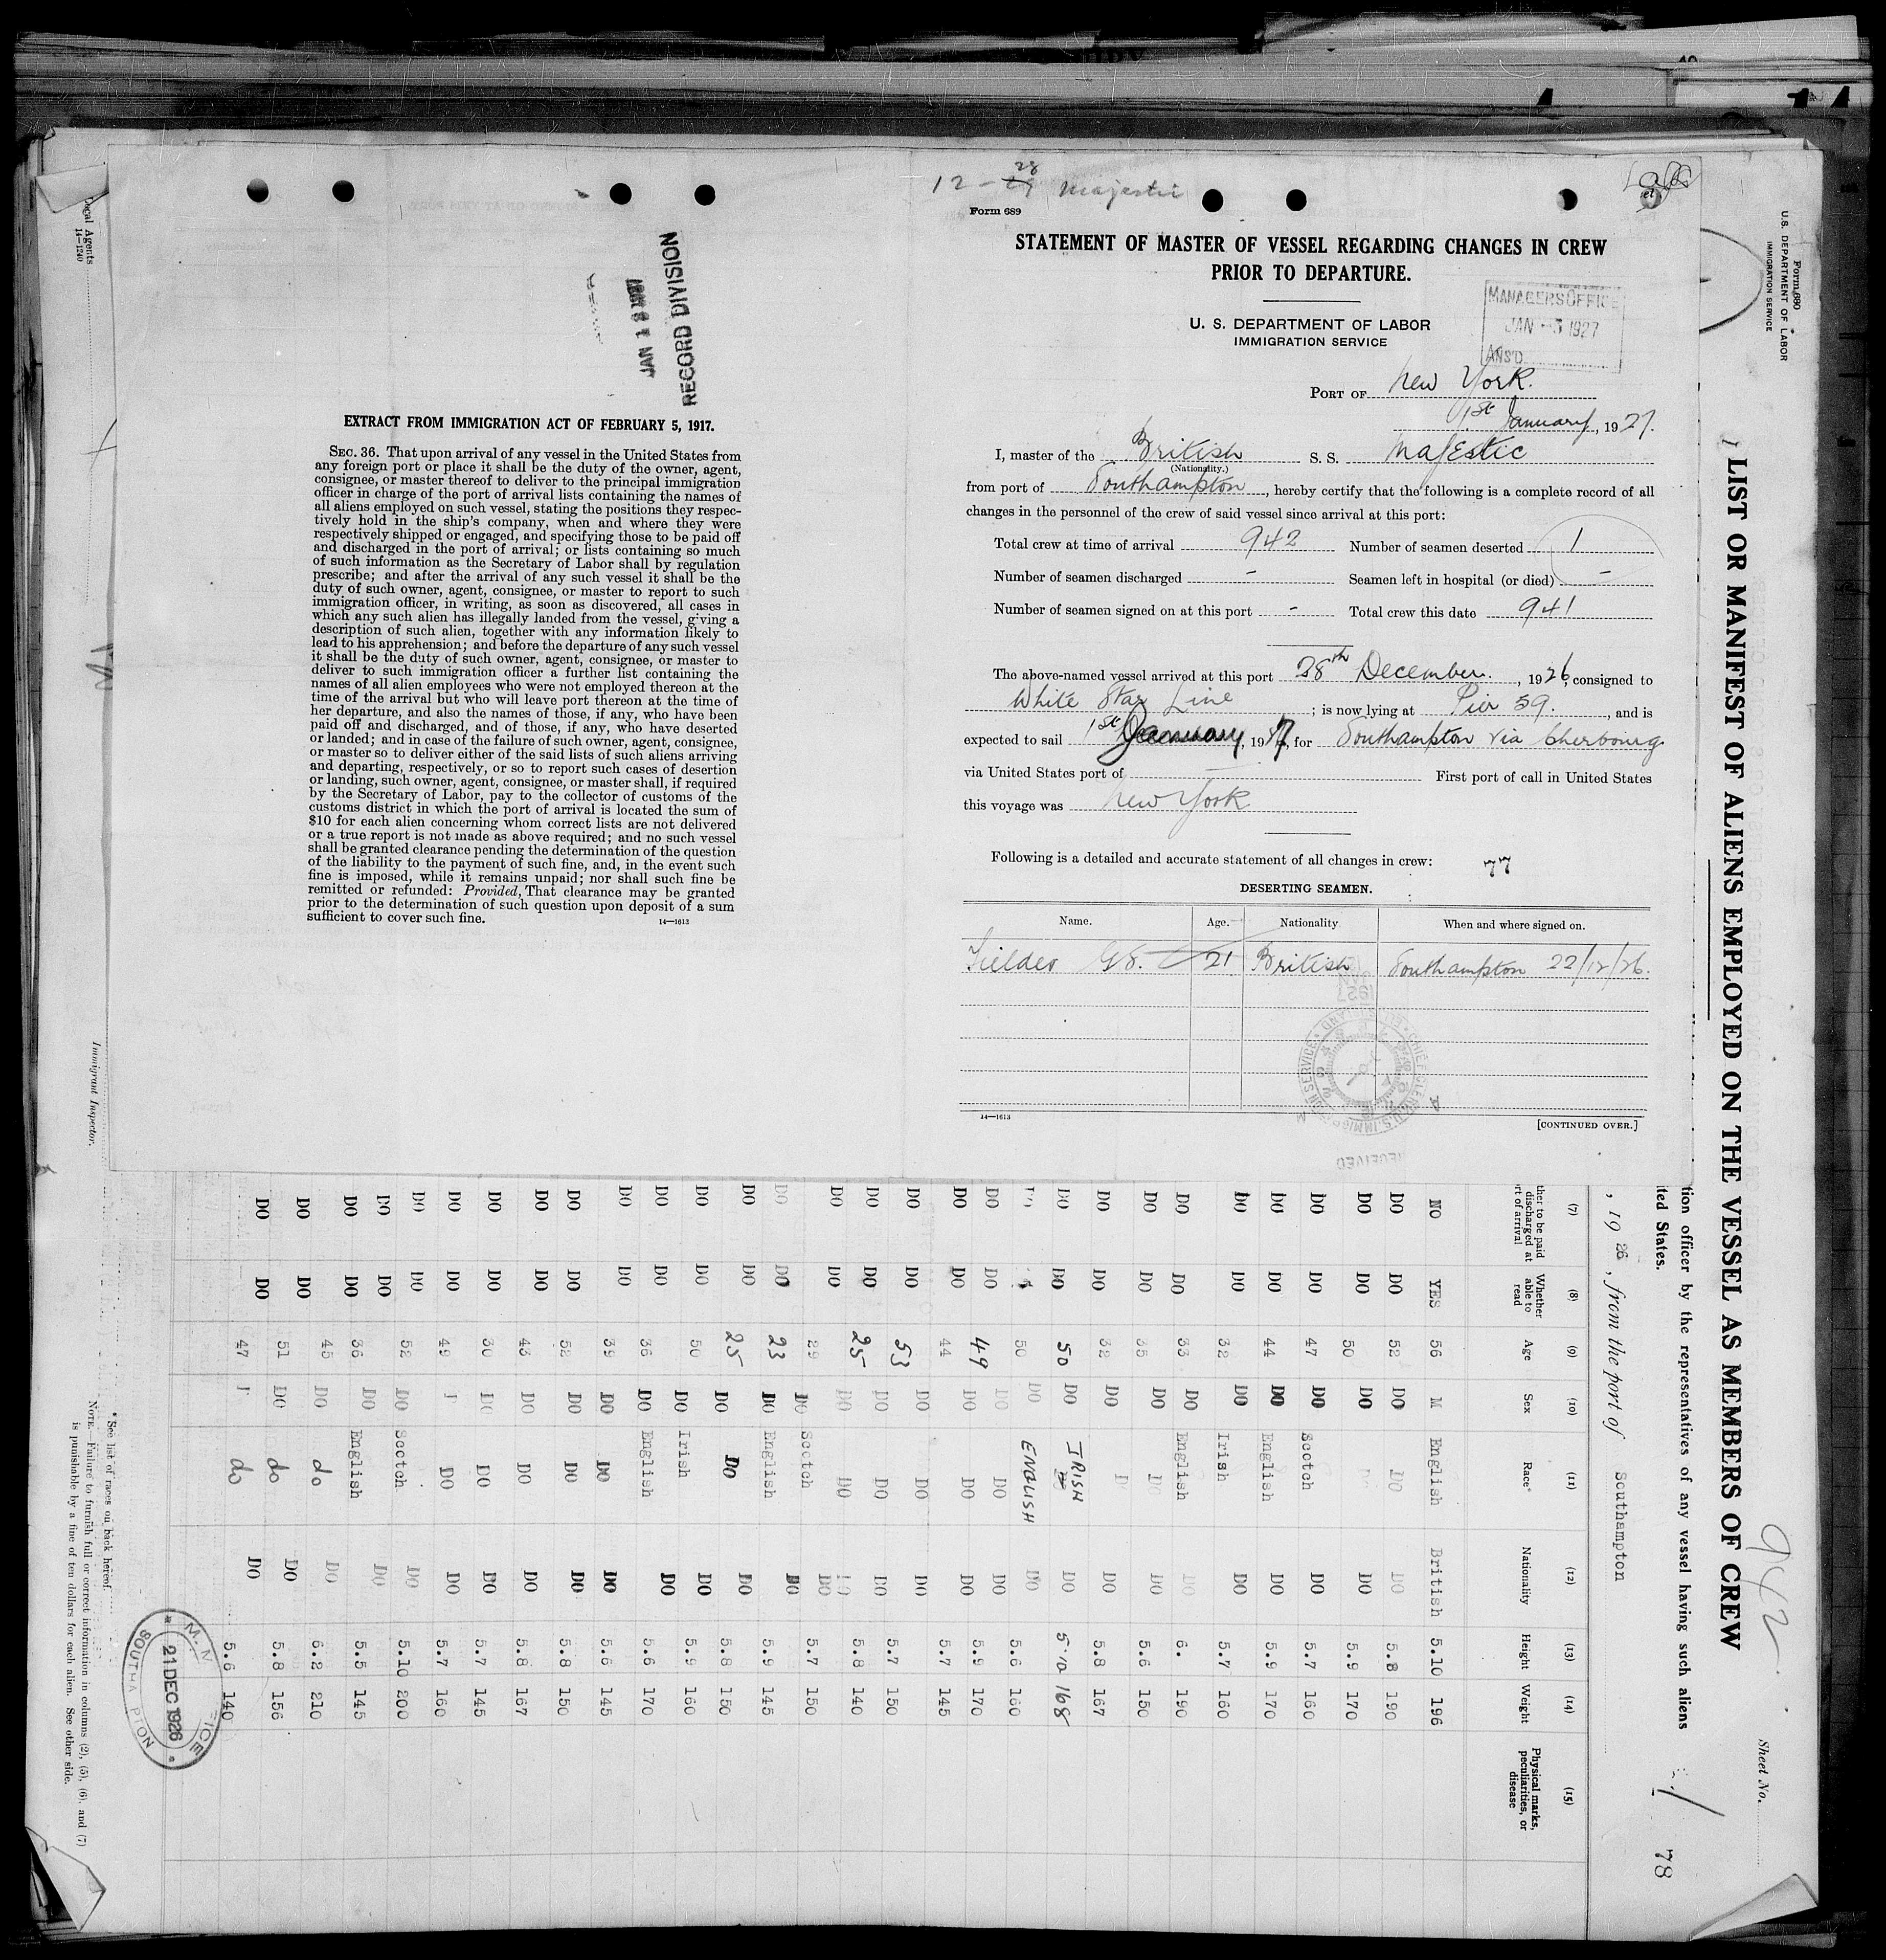 12-28 Majestic
Form 689
STATEMENT OF MASTER OF VESSEL REGARDING CHANGES IN CREW
PRIOR TO DEPARTURE.
U. S. DEPARTMENT OF LABOR
IMMIGRATION SERVICE
MANAGERS OFFICE
JAN -3 1927
ANS'D
PORT OF New York.
1st January, 1927.
I, master of the British S. S. Majestic
(Nationality.)
from port of Southampton, hereby certify that the following is a complete record of all
changes in the personnel of the crew of said vessel since arrival at this port:
Total crew at time of arrival 942 Number of seamen deserted 1
Number of seamen discharged - Seamen left in hospital (or died) -
Number of seamen signed on at this port - Total crew this date 941
The above-named vessel arrived at this port 28th December. , 1926, consigned to
White Star Line ; is now lying at Pier 59. , and is
expected to sail 1st January, 1927, for Southampton via Cherbourg
via United States port of First port of call in United States
this voyage was New York
Following is a detailed and accurate statement of all changes in crew: 77
DESERTING SEAMEN.
Name. Age. Nationality When and where signed on.
Fielder G. 21 British Southampton 22/12/26.
14—1613
[CONTINUED OVER.]
JAN 18 1927
RECORD DIVISION
EXTRACT FROM IMMIGRATION ACT OF FEBRUARY 5, 1917.
SEC. 36. That upon arrival of any vessel in the United States from
any foreign port or place it shall be the duty of the owner, agent,
consignee, or master thereof to deliver to the principal immigration
officer in charge of the port of arrival lists containing the names of
all aliens employed on such vessel, stating the positions they respec-
tively hold in the ship's company, when and where they were
respectively shipped or engaged, and specifying those to be paid off
and discharged in the port of arrival; or lists containing so much
of such information as the Secretary of Labor shall by regulation
prescribe; and after the arrival of any such vessel it shall be the
duty of such owner, agent, consignee, or master to report to such
immigration officer, in writing, as soon as discovered, all cases in
which any such alien has illegally landed from the vessel, giving a
description of such alien, together with any information likely to
lead to his apprehension; and before the departure of any such vessel
it shall be the duty of such owner, agent, consignee, or master to
deliver to such immigration officer a further list containing the
names of all alien employees who were not employed thereon at the
time of the arrival but who will leave port thereon at the time of
her departure, and also the names of those, if any, who have been
paid off and discharged, and of those, if any, who have deserted
or landed; and in case of the failure of such owner, agent, consignee,
or master so to deliver either of the said lists of such aliens arriving
and departing, respectively, or so to report such cases of desertion
or landing, such owner, agent, consignee, or master shall, if required
by the Secretary of Labor, pay to the collector of customs of the
customs district in which the port of arrival is located the sum of
$10 for each alien concerning whom correct lists are not delivered
or a true report is not made as above required; and no such vessel
shall be granted clearance pending the determination of the question
of the liability to the payment of such fine, and, in the event such
fine is imposed, while it remains unpaid; nor shall such fine be
remitted or refunded: Provided, That clearance may be granted
prior to the determination of such question upon deposit of a sum
sufficient to cover such fine.
14—1613
Form 680
U. S. DEPARTMENT OF LABOR
IMMIGRATION SERVICE
Sheet No.
942
LIST OR MANIFEST OF ALIENS EMPLOYED ON THE VESSEL AS MEMBERS OF CREW
tion officer by the representatives of any vessel having such aliens
ited States.
78
, 1926, from the port of Southampton
(7) (8) (9) (10) (11) (12) (13) (14) (15)
ther to be paid discharged at rt of arrival Whether able to read Age Sex Race* Nationality Height Weight Physical marks, peculiarities, or disease
NO YES 56 M English British 5.10 196
DO DO 52 DO DO DO 5.8 190
DO DO 50 DO DO 5.9 170
DO DO 47 DO Scotch DO 5.7 160
DO DO 44 DO English DO 5.9 170
DO DO 32 DO Irish DO 5.7 160
DO DO 33 DO English DO 6. 190
DO DO 35 DO DO DO 5.6 150
DO DO 32 DO D DO 5.8 167
DO DO 50 DO IRISH DO 5.10 168
50 DO ENGLISH DO 5.6 160
DO DO 49 DO DO DO 5.9 170
DO DO 44 DO DO DO 5.7 145
DO DO 53 DO DO DO 5.7 150
DO DO 25 DO DO DO 5.8 140
DO DO 29 DO Scotch DO 5.7 150
DO DO 23 DO English DO 5.9 145
DO DO 25 DO DO DO 5.8 150
DO DO 50 DO Irish DO 5.9 160
DO DO 36 DO English DO 5.6 170
DO DO 39 DO DO DO 5.6 145
DO DO 52 DO DO DO 5.8 150
DO DO 43 DO DO DO 5.8 167
DO DO 30 DO DO DO 5.7 145
DO DO 49 DO DO 5.7 160
DO DO 52 DO Scotch DO 5.10 200
DO DO 36 DO English DO 5.5 145
DO DO 45 DO do DO 6.2 210
DO DO 51 DO do DO 5.8 156
DO DO 47 do DO 5.6 140
* See list of races on back hereof.
NOTE.—Failure to furnish full or correct information in columns (2), (5), (6), and (7)
is punishable by a fine of ten dollars for each alien. See other side.
21 DEC 1926
SOUTHAMPTON
Immigrant Inspector.
ocal Agents
14—1240